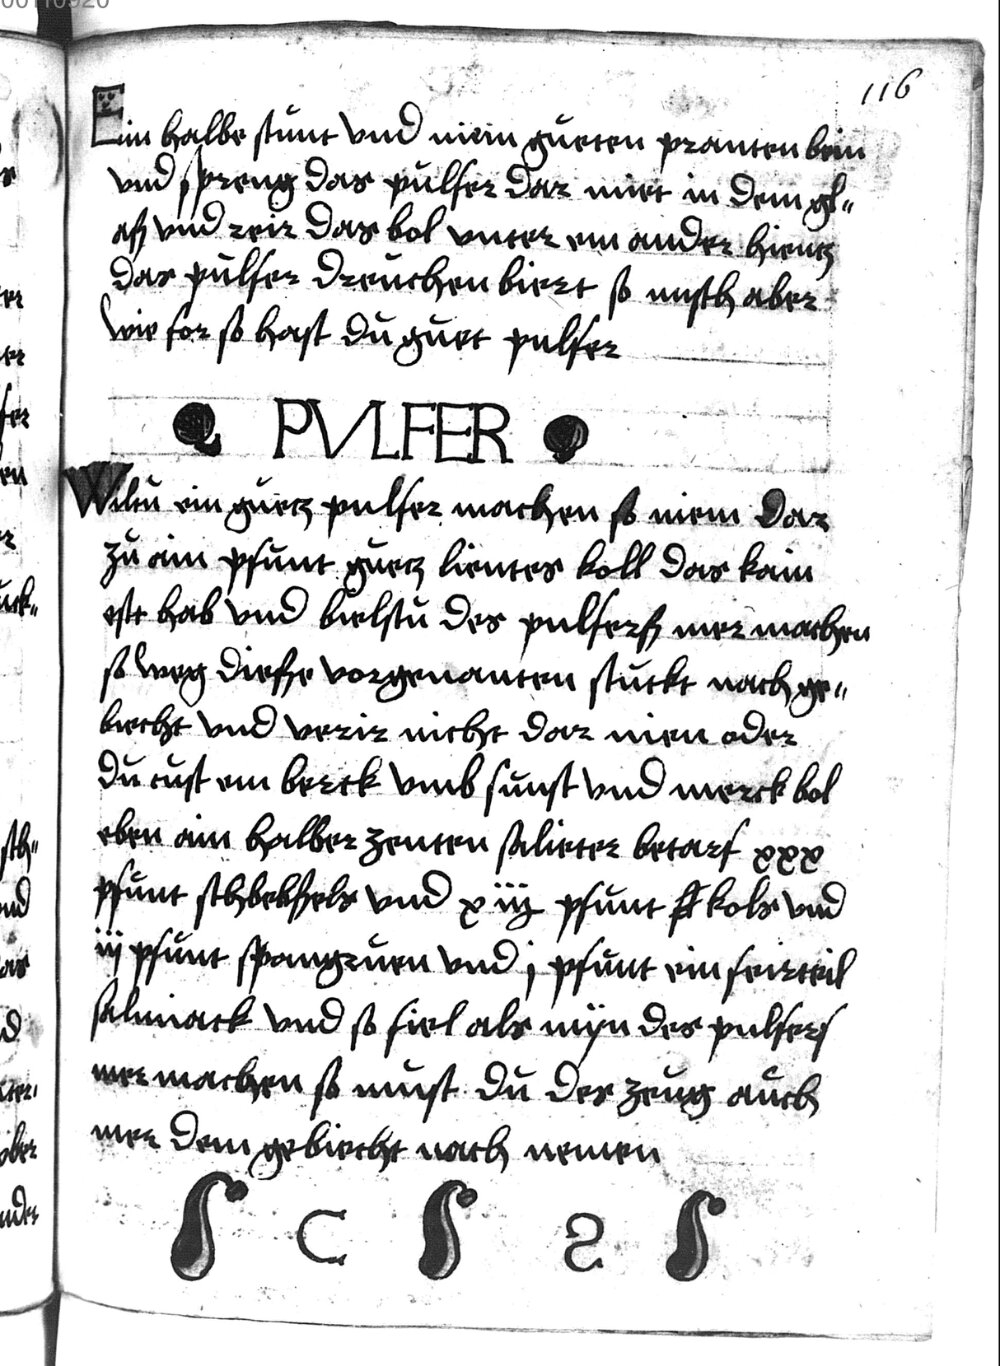 116
Ein halbe stunt vnd niem gueten pranten bein
vnd spreng das pulfer dar miet in dem gl„
aß vnd reir das bol vnter ein ander hientz
das pulfer dreuchen biert so misch aber
wie for so hast du guet pulfer
PVLFER
Wiltu ein guetz pulfer machen so niem dar
zu ain pfunt guetz lientes koll das kain
este hab vnd bielstu des pulferß mer machen
so weg diesse vorgenanten stuckt nach ge„
biecht vnd verir nicht dar nien oder
du tust ein berck vmb sunst vnd merck bol
eben ain halber zenten saliter betarf xxx
pfunt schbebhels vnd x iij pfunt kols vnd
iij pfunt spongruen vnd j pfunt ein feirteil
salmiack vnd so fiel als mijn des pulfers
mer machen so must du des zeug auch
mer dem gebiecht nach nemen